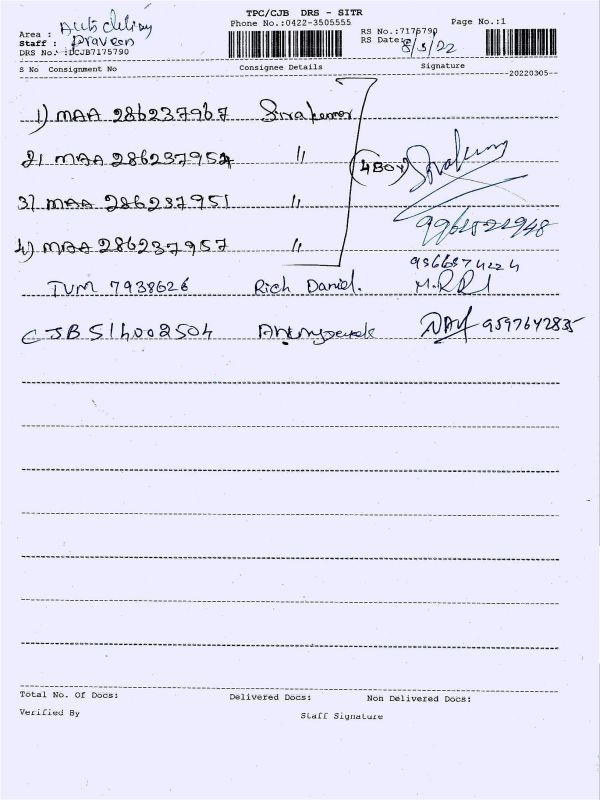 TPC/CJB DRS - SITR
Phone No.:0422-3505555
Page No.:1
Area : Auto delivay
Staff : Praveen
DRS No. :DCJB7175790
RS No.:7175790
RS Date: 8/3/22
S No Consignment No Consignee Details Signature
--20220305--
1) MAA 286237967 Sivakumar
2) MAA 286237952 "
(4 BOX)
3) MAA 286237951 "
9961521948
4) MAA 286237957 "
9566574224
TVM 7938626 Rich Daniel.
CJB 514002504 9597642835
Total No. Of Docs: Delivered Docs: Non Delivered Docs:
Verified By Staff Signature